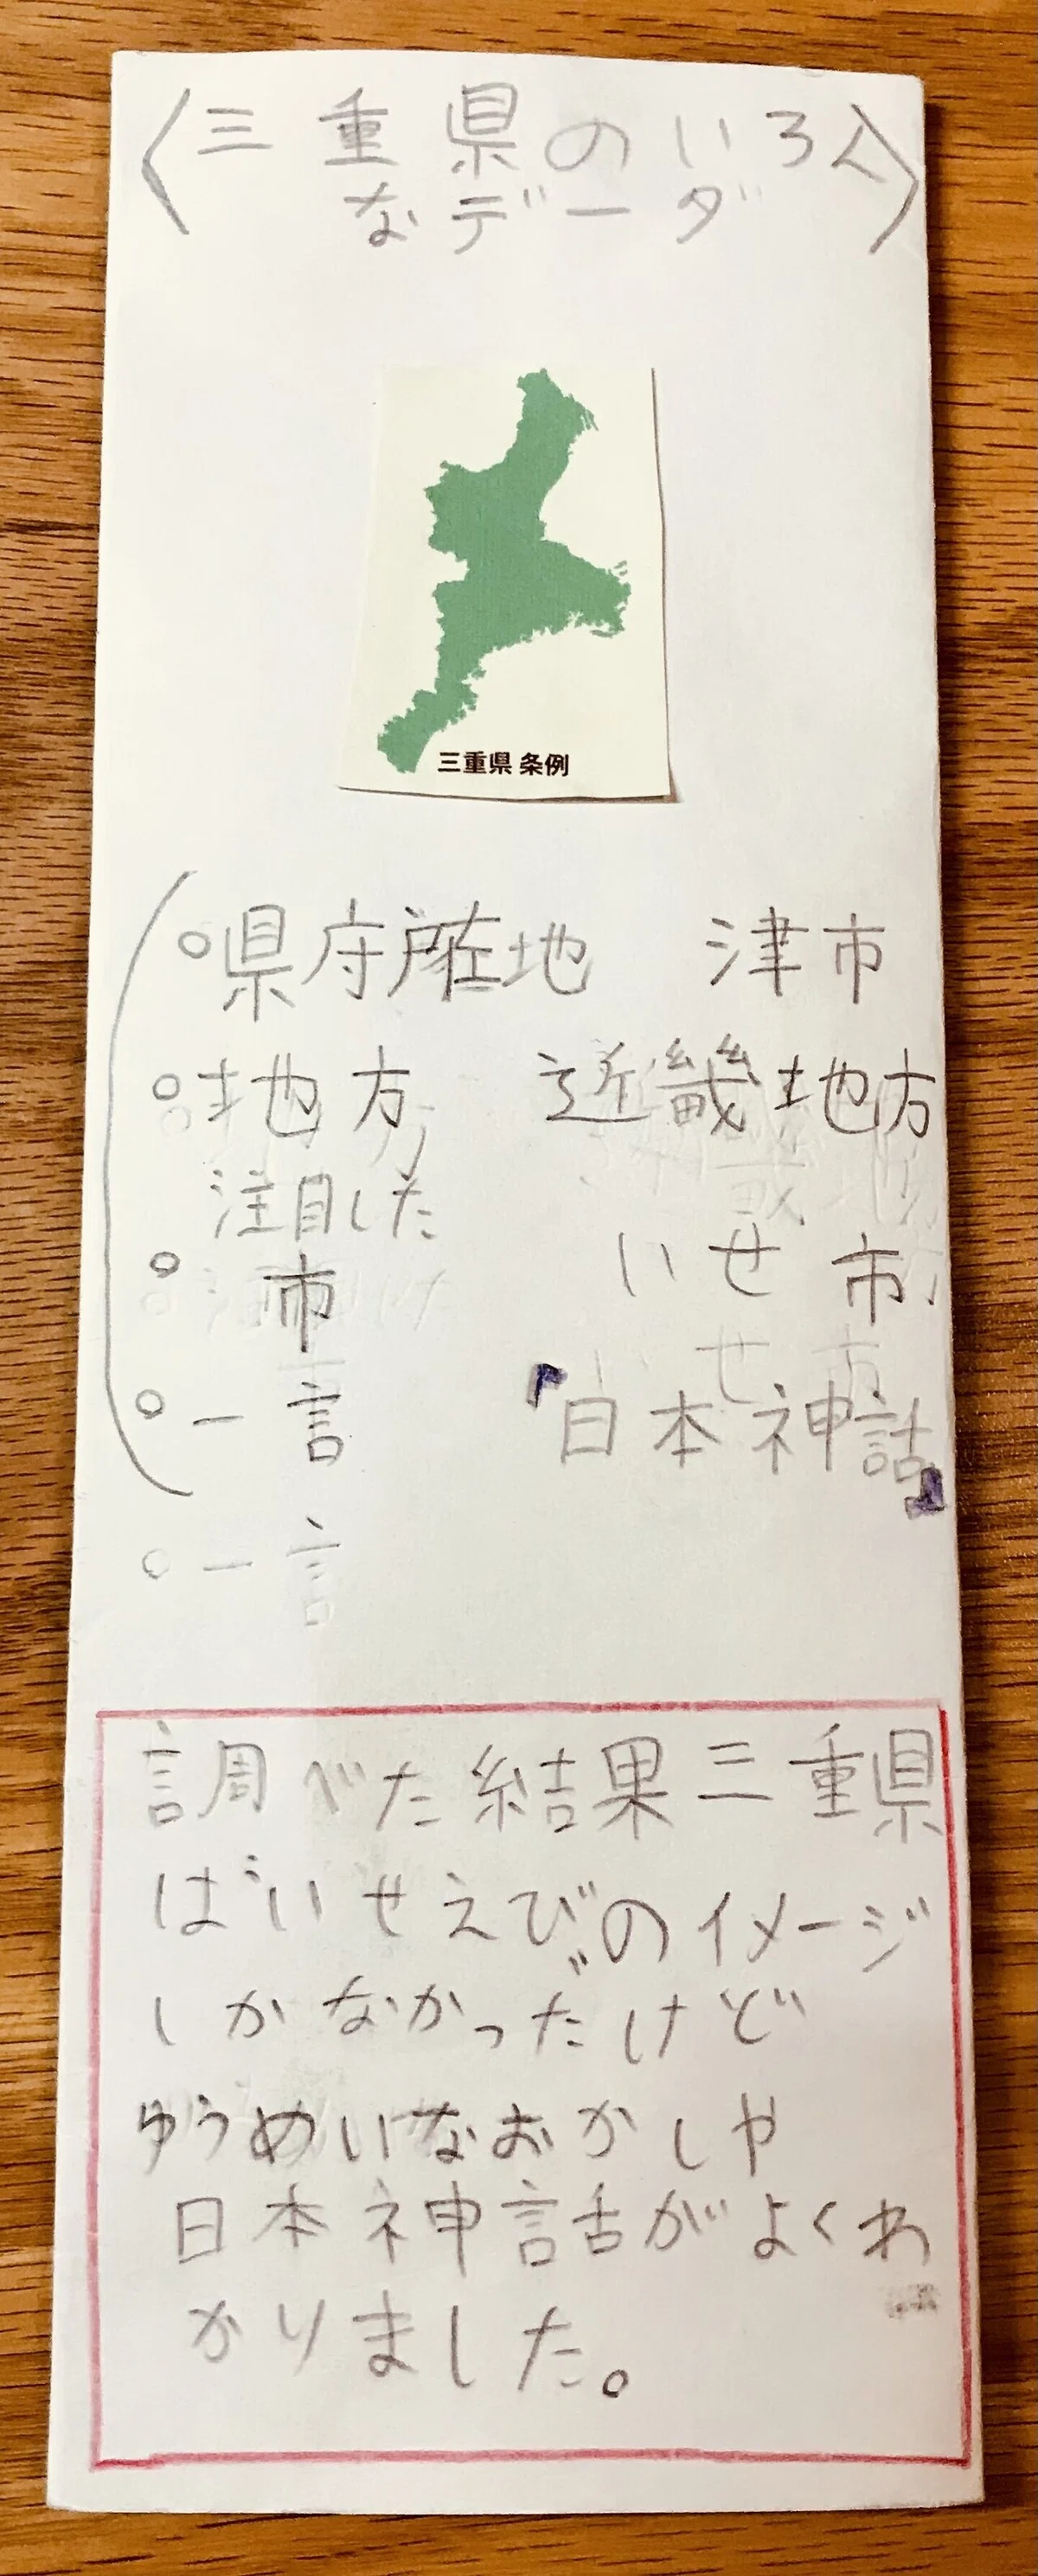 〈三重県のいろんなデータ〉
三重県 条例
○県庁所在地 津市
○地方 近畿地方
注目した
○市 いせ市
○一言 「日本神話」
○一言
調べた結果三重県
はいせえびのイメージ
しかなかっだけど
ゆうめいなおかしや
日本神話がよくわ
かりました。